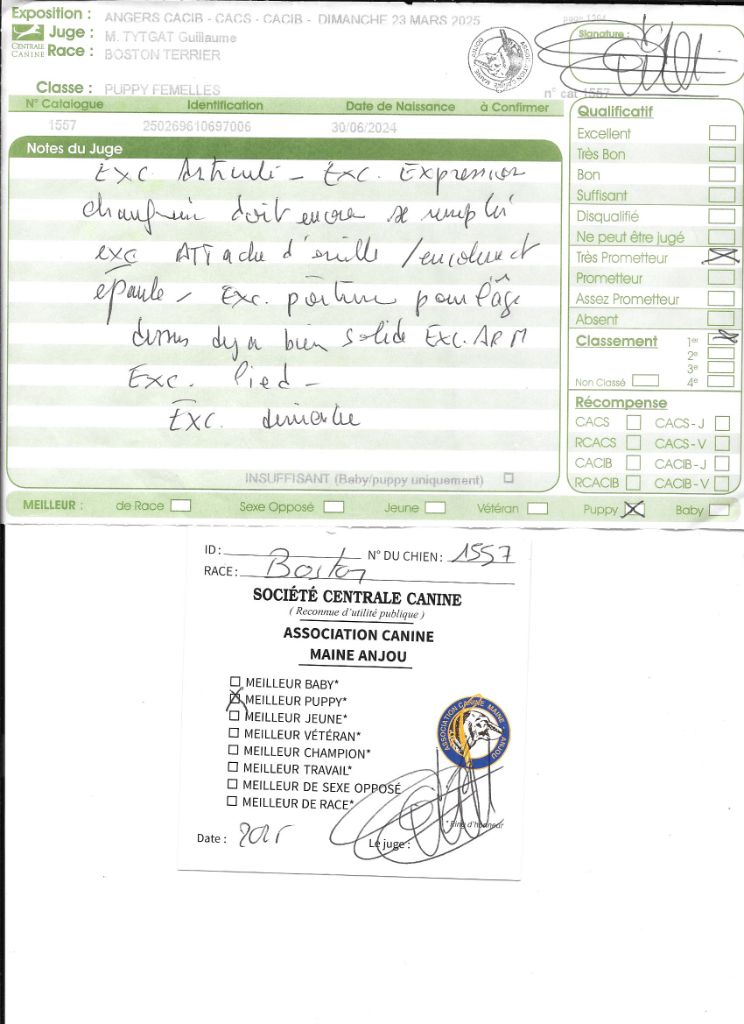 Exposition : ANGERS CACIB - CACS - CACIB - DIMANCHE 23 MARS 2025
Juge : M. TYTGAT Guillaume
Race : BOSTON TERRIER
CENTRALE CANINE
Signature :
Classe : PUPPY FEMELLES
n° cat 1557
N° Catalogue Identification Date de Naissance à Confirmer
1557 250269610697006 30/06/2024
Notes du Juge
Exc. Articulé - Exc. Expression
doit encore se remplir
exc ATTache d'oreille / encolure et
épaule - Exc. poitrine pour l'âge
dessus déjà bien solide Exc. AR M
Exc. pied -
Exc. démarche
INSUFFISANT (Baby/puppy uniquement)
Qualificatif
Excellent
Très Bon
Bon
Suffisant
Disqualifié
Ne peut être jugé
Très Prometteur
Prometteur
Assez Prometteur
Absent
Classement 1er
2e
3e
Non Classé 4e
Récompense
CACS CACS - J
RCACS CACS - V
CACIB CACIB - J
RCACIB CACIB - V
MEILLEUR : de Race Sexe Opposé Jeune Vétéran Puppy Baby
ID : N° DU CHIEN : 1557
RACE : Boston
SOCIÉTÉ CENTRALE CANINE
( Reconnue d'utilité publique )
ASSOCIATION CANINE
MAINE ANJOU
MEILLEUR BABY*
MEILLEUR PUPPY*
MEILLEUR JEUNE*
MEILLEUR VÉTÉRAN*
MEILLEUR CHAMPION*
MEILLEUR TRAVAIL*
MEILLEUR DE SEXE OPPOSÉ
MEILLEUR DE RACE*
ASSOCIATION CANINE MAINE - ANJOU
* Ring d'honneur
Date : 2025 Le juge :